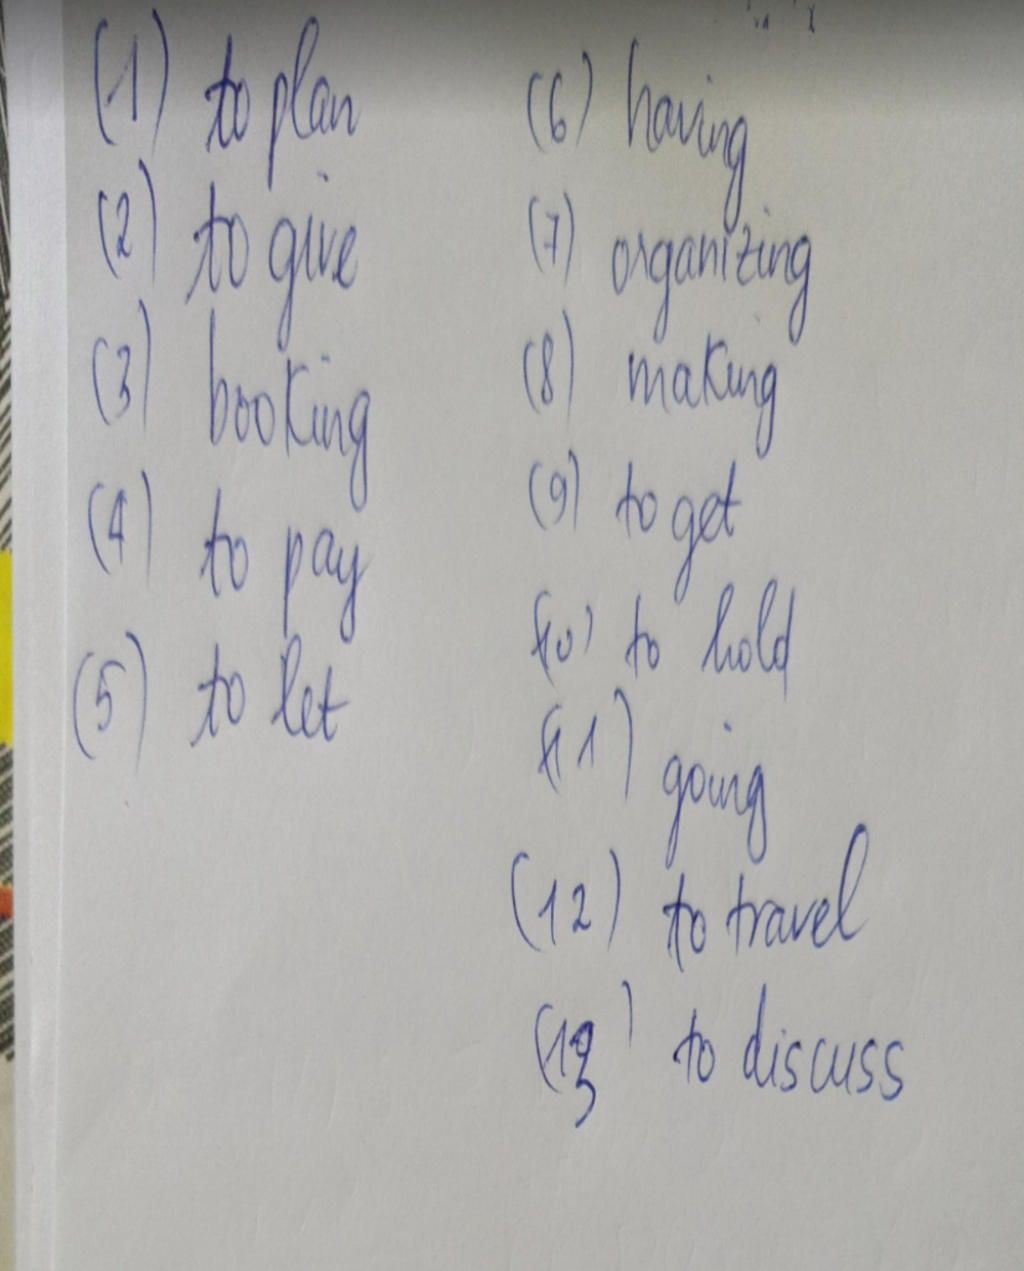 (1) to plan
(2) to give
(3) booking
(4) to pay
(5) to let
(6) having
(7) organizing
(8) making
(9) to get
(10) to hold
(11) going
(12) to travel
(13) to discuss